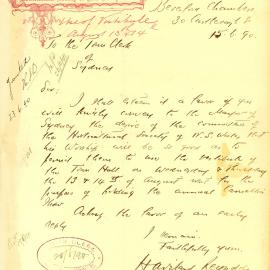 Chambers
30 Castlereagh St
15.6.90
August 13 & 14
To the Town Clerk
of
Sydney
Sir
I shall esteem it a favor if you
will kindly convey to the Mayor of
Sydney the desire of the committee of
the Horticultural Society of N.S. Wales that
his Worship will be so good as to
permit them to use the vestibule of
the Town Hall on Wednesday & Thursday
the 13 & 14th of August next for the
purpose of holding the annual Camellia
Show
Asking the favor of an early
reply
I remain
Faithfully yours